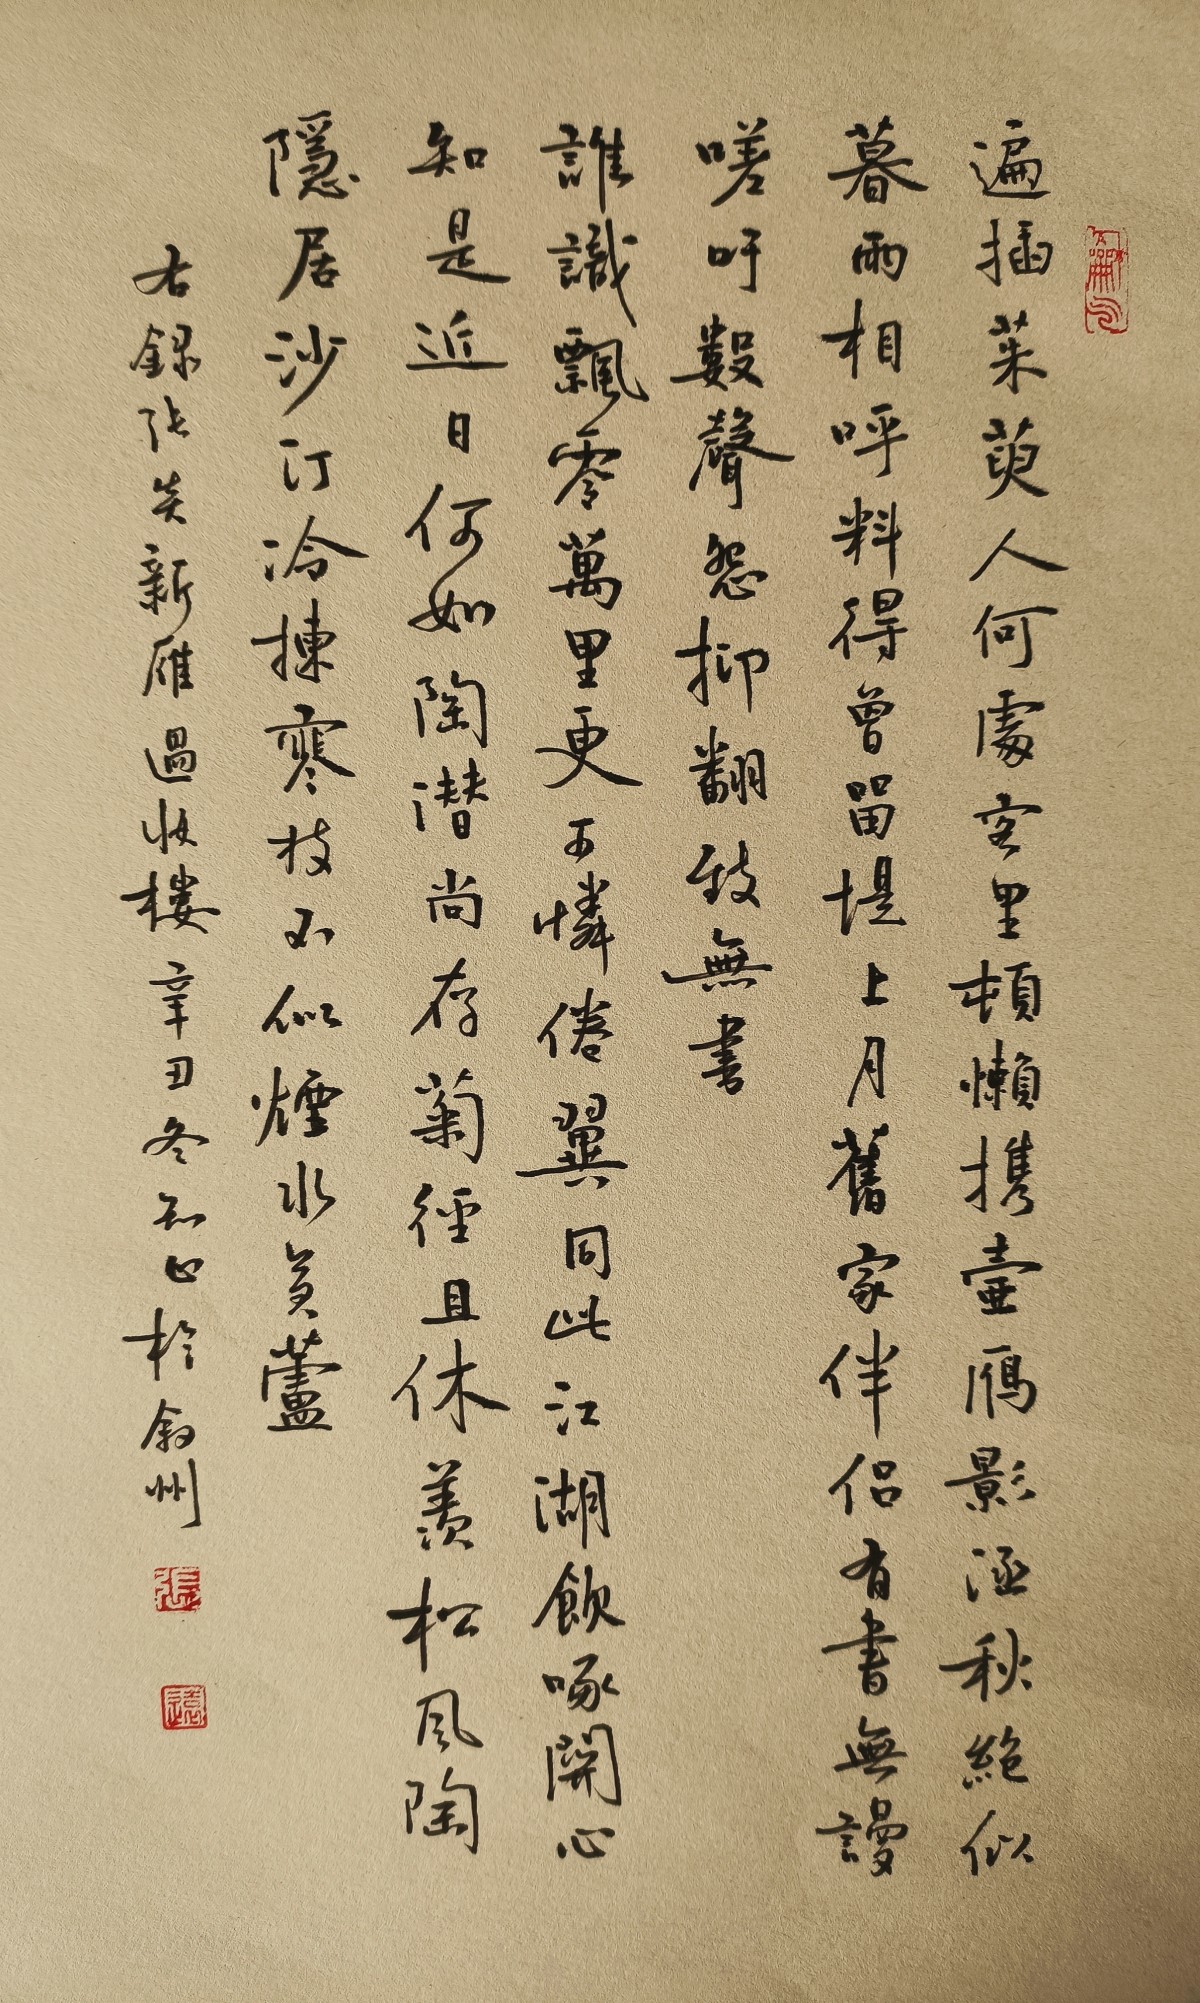 遍插茱萸人何處客里頓懶携壺雁影涵秋絶似
暮雨相呼料得曾留堤上月舊家伴侣有書無謾
嗟吁數聲怨抑翻致無書
誰識飄零萬里更可憐倦翼同此江湖飲啄關心
知是近日何如陶潜尚存菊徑且休羡松風陶
隱居沙汀冷揀寒枝不似煙水黄蘆
右録張炎新雁過妝樓辛丑冬知心於叙州
張
遠